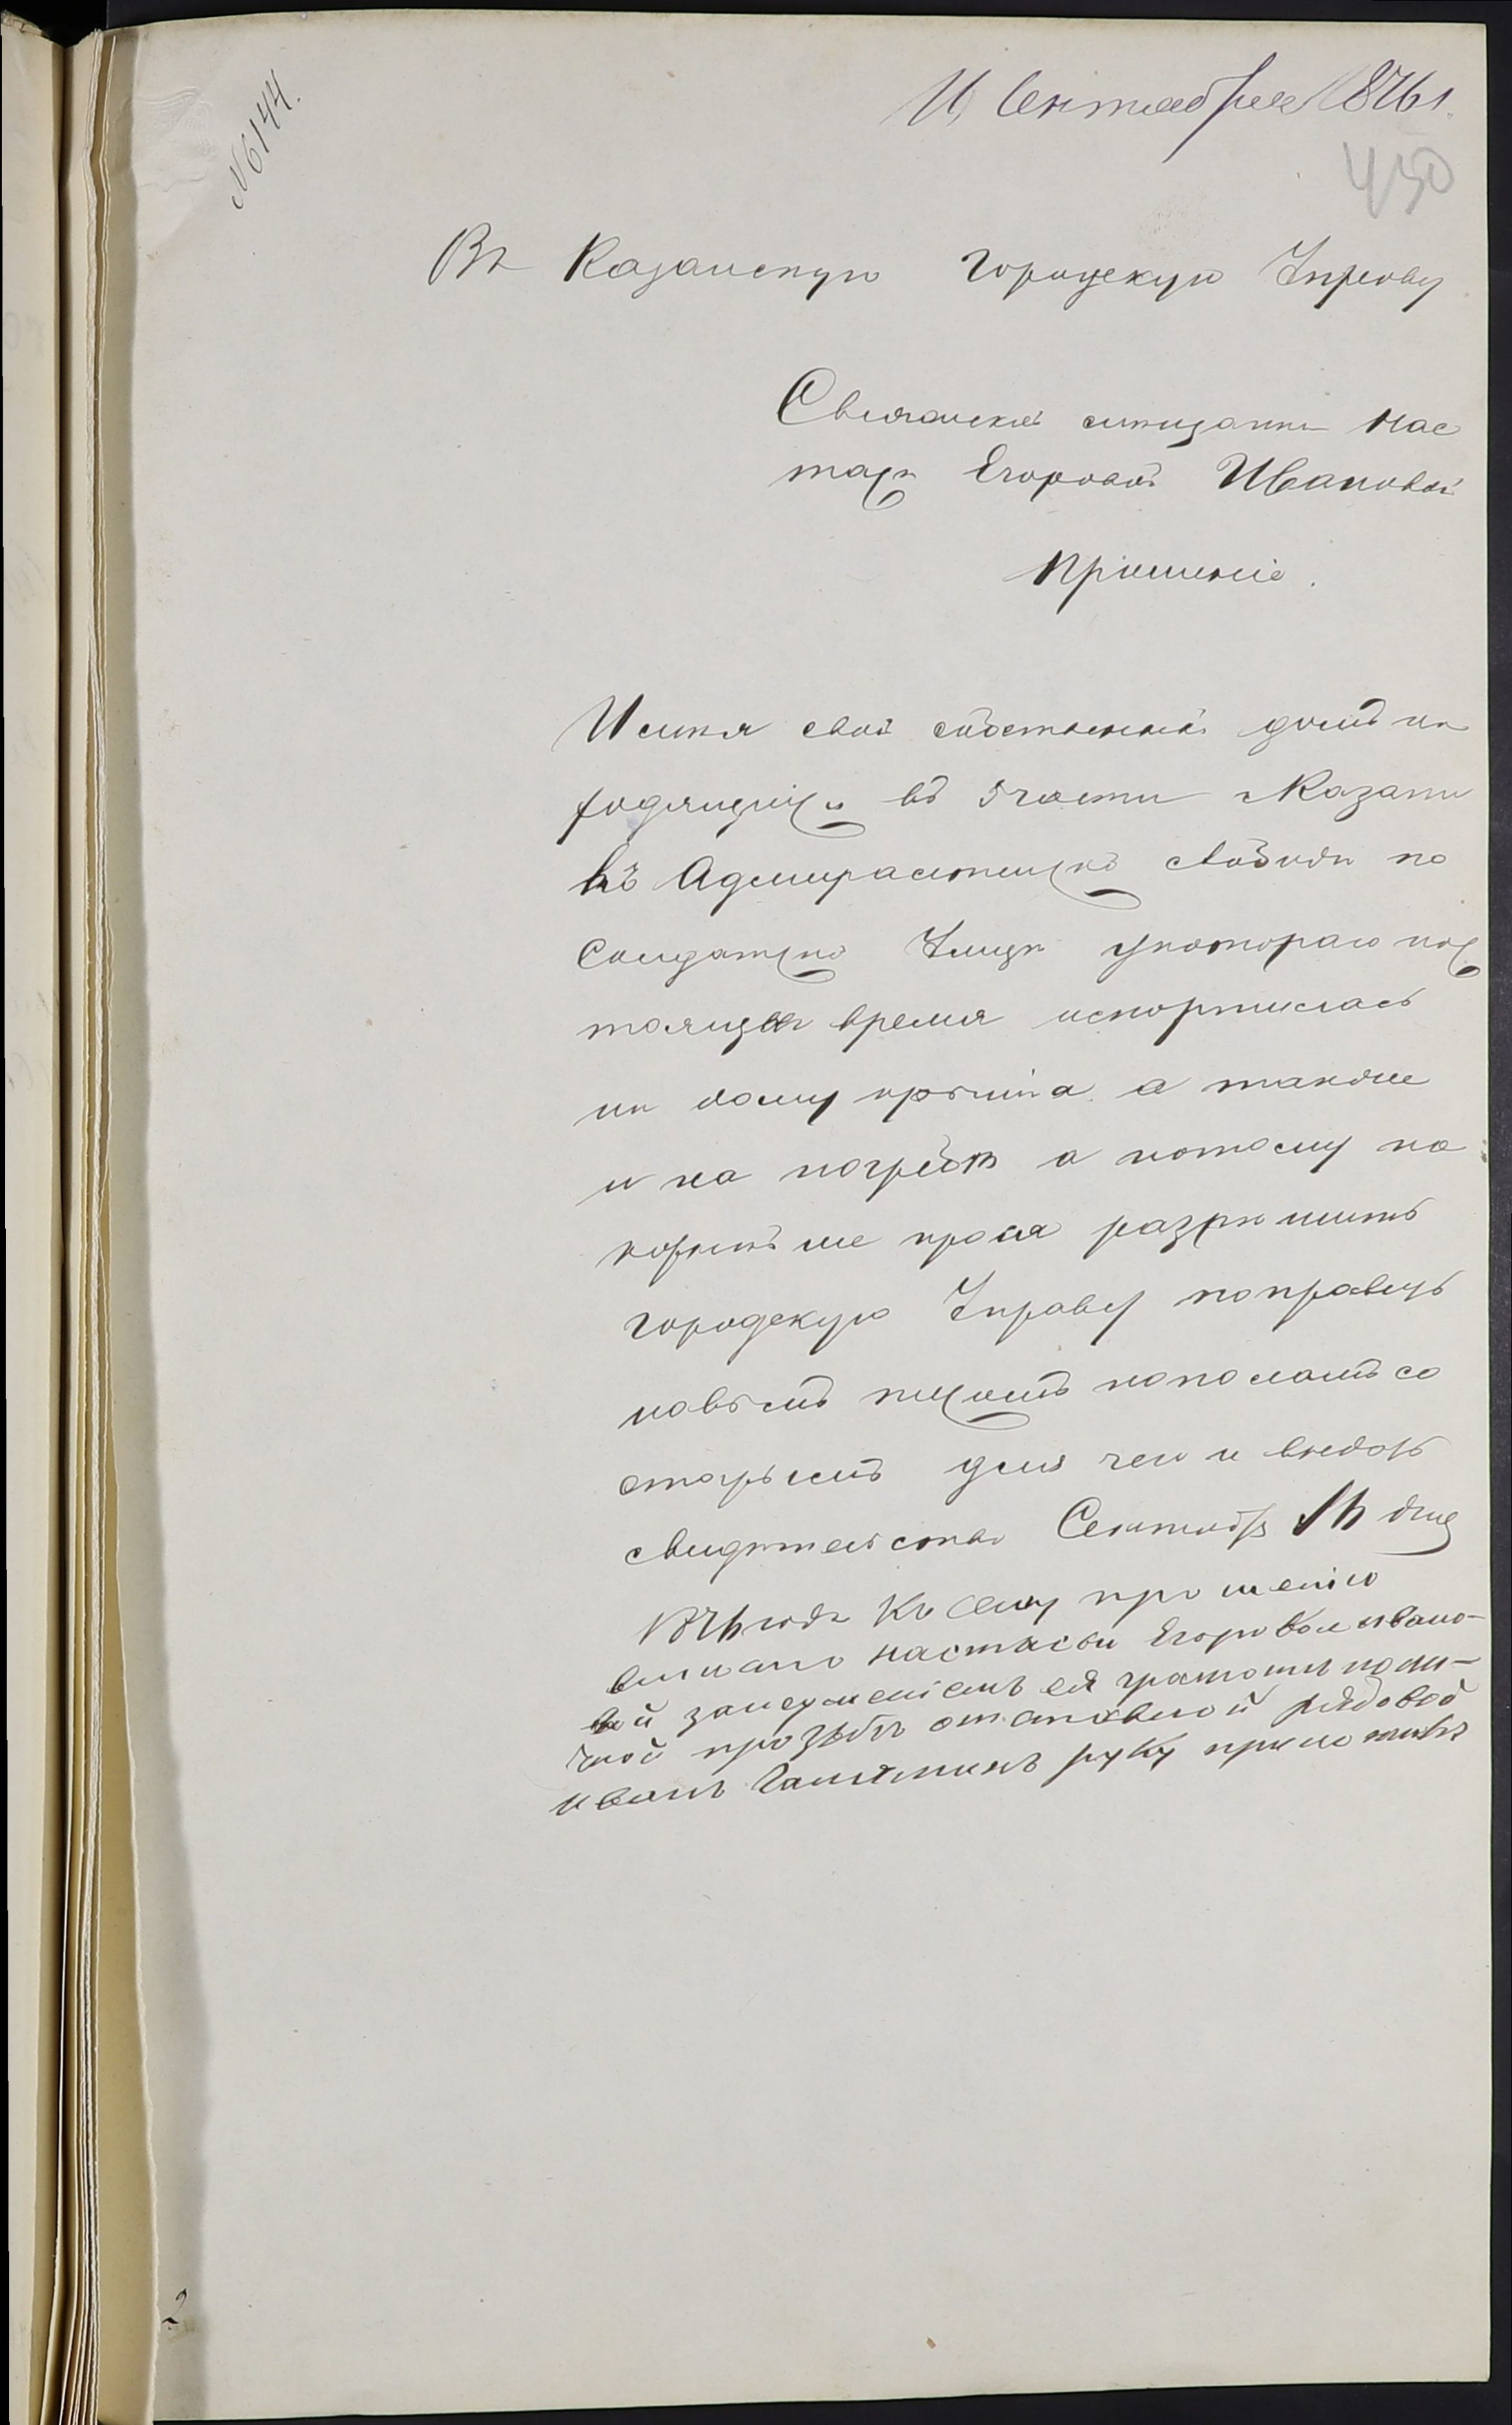 № 6144.
11 Сентября 1876 г.
450
Въ Казанскую Городскую Управу
Свіяжской мѣщанки Нас
тасьи Егоровой Ивановой
Прошеніе.
Имея свой собственный домъ на
ходящійся въ 5 части г Казани
въ Адмиралтейской слободѣ по
Солдатской Улицѣ укотораго нас
тоящее время испортилась
на дому крыша а также
и на погребѣ а потому по
корнѣйше прося разрѣшить
Городскую Управу поправить
новымъ тесомъ пополамъ со
старымъ для чего и выдать
свидѣтельство Сентября 11 дня
1876 года Къ сему прошенію
вмѣсто настасьи Егоровой ивано-
вой занеумѣніемъ ея грамоты поли-
чной прозьбѣ отставной рядовой
иванъ руку приложилъ
2